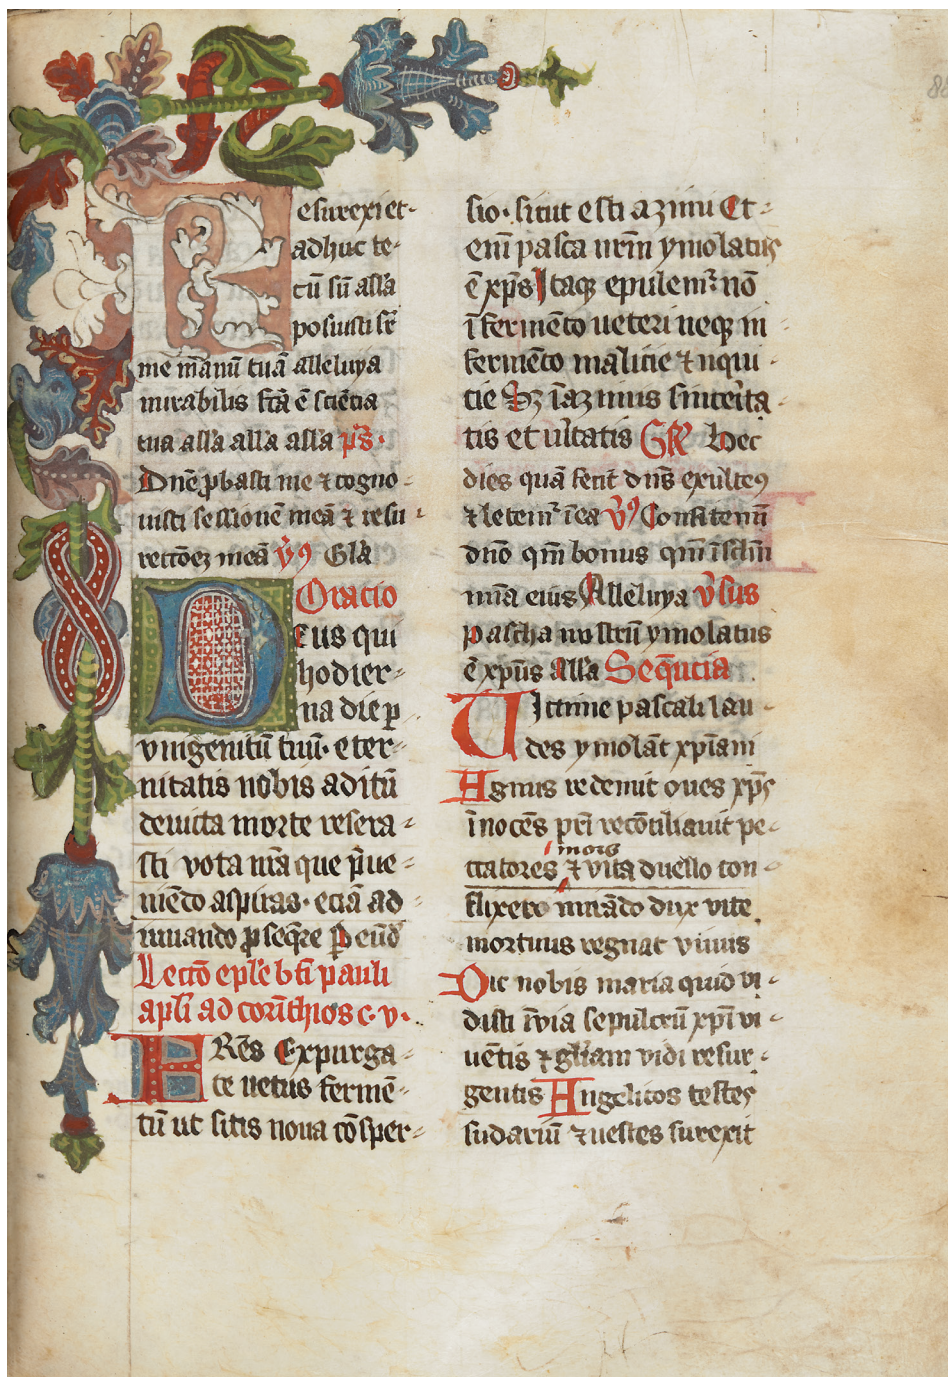 Resurexi et
adhuc te-
cū sū all'a
posuisti sr̄
me mānū tuā alleluya
mirabilis fc̄a ē sciēcia
tua all'a all'a all'a p̄s.
Dnē ꝓbasti me ⁊ cogno-
uisti sessionē meā ⁊ resu-
rectōeꝫ meā v̄ꝰ Gl'a
Oracio
Deus qui
hodier-
na die ꝑ
vnigenitū tuū· eter-
nitatis nobis aditū
deuicta morte resera-
sti vota nr̄a que p̄ue-
niēdo aspiras· eciā ad-
iuuando ꝓseqr̄e P eūd
Lectō epl'e bt̄i pauli
apl'i ad corīthios c· v·
FRēs Expurga-
te uetus fermē-
tū ut sitis noua cōsper-
sio· sicut esti azimi Et-
eni̅ pasca nr̄m ymolatus
ē xp̄s Itaqꝫ epulemr̄ nō
ī fermēto ueteri neqꝫ in
fermēto malicie ⁊ nqui-
cie Sꝫ ī azimis sincerita-
tis et ūitatis Gr̄ Hec
dies quā fecit dn̄s exultēꝰ
⁊ letemr̄ ī ea v̄ꝰ Confitemī
dn̄o qm̄ bonus qm̄ ī sclm̄
mīa eius Alleluya v̄sus
pascha nostrū ymolatus
ē xpūs All'a Seqūcia
VIctime pascali lau-
des ymolāt xpīani
Agnus redemit oues xp̄s
īnocēs pr̄i recōciliauit pe-
mors
ccatores ⁊ vita duello con-
flixero mirādo dux vite
mortuus regnat viuus
Dic nobis maria quid vi-
disti ī via sepulcrū xp̄i vi-
uētis ⁊ gl'iam vidi resur-
gentis Angelicos testes
sudariū ⁊ uestes surexit